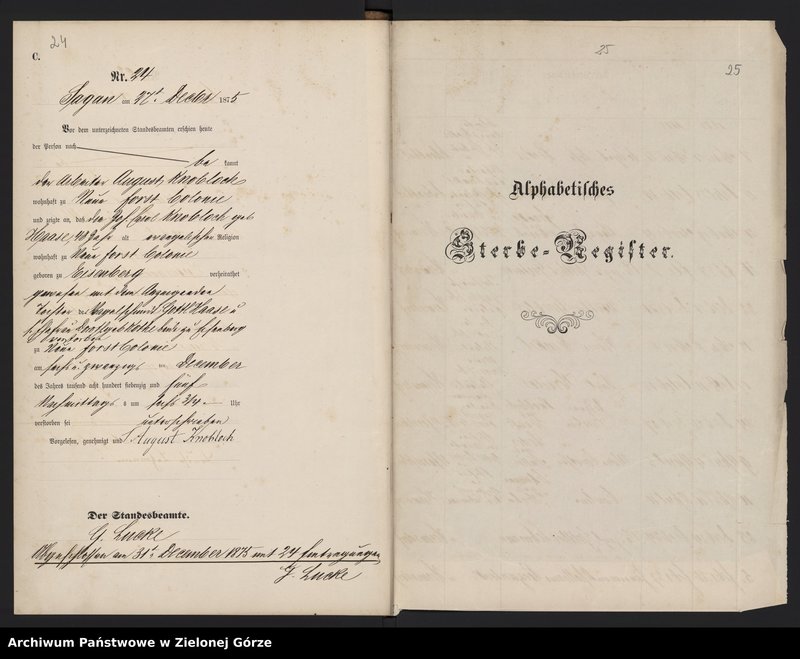 24
C.
Nr. 24
Sagan am 27t. Decbr 1875
Vor dem unterzeichneten Standesbeamten erschien heute
der Person nach
be kannt
der Arbeiter August Knobloch
wohnhaft zu Neu forst Colonie
und zeigte an, daß die Knobloch geb
Haase, 40 Jahr alt evangelischer Religion
wohnhaft zu Neu forst Colonie
geboren zu Eisenberg verheirathet
gewesen mit dem Anzeigenden
Tochter des Gottl Haase u
zu Eisenberg
verstorben
zu Neu forst Colonie
am sechs u. zwanzigs ten December
des Jahres tausend acht hundert siebenzig und fünf
Nachmittags um sechs 3/4 Uhr
verstorben sei
unterschrieben
Vorgelesen, genehmigt und August Knobloch
Der Standesbeamte.
G. Lucke
Abgeschlossen am 31t. December 1875 mit 24 Eintragungen
G. Lucke
25
25
Alphabetisches
Sterbe-Register.
Archiwum Państwowe w Zielonej Górze